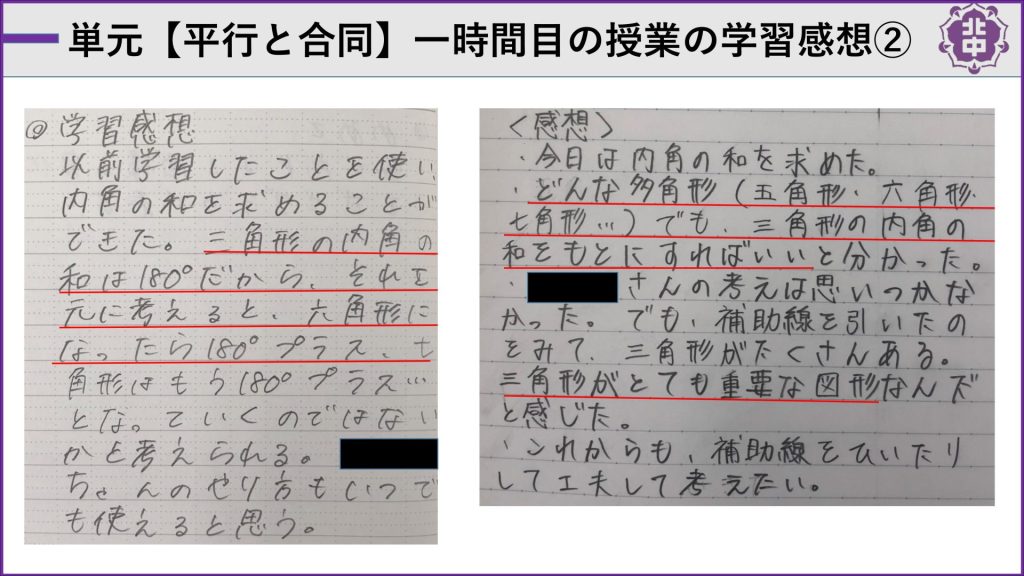 単元【平行と合同】一時間目の授業の学習感想②
北中
◎学習感想
以前学習したことを使い
内角の和を求めることが
できた。三角形の内角の
和は180°だから、それを
元に考えると、六角形に
なったら180°プラス、七
角形はもう180°プラス…
となっていくのではない
かと考えられる。
ちゃんのやり方もいつで
も使えると思う。
〈感想〉
・今日は内角の和を求めた。
・どんな多角形(五角形・六角形・
七角形…)でも、三角形の内角の
和をもとにすればいいと分かった。
・さんの考えは思いつかな
かった。でも、補助線を引いたの
をみて、三角形がたくさんある。
三角形がとても重要な図形なんだ
と感じた。
・これからも、補助線をひいたり
して工夫して考えたい。